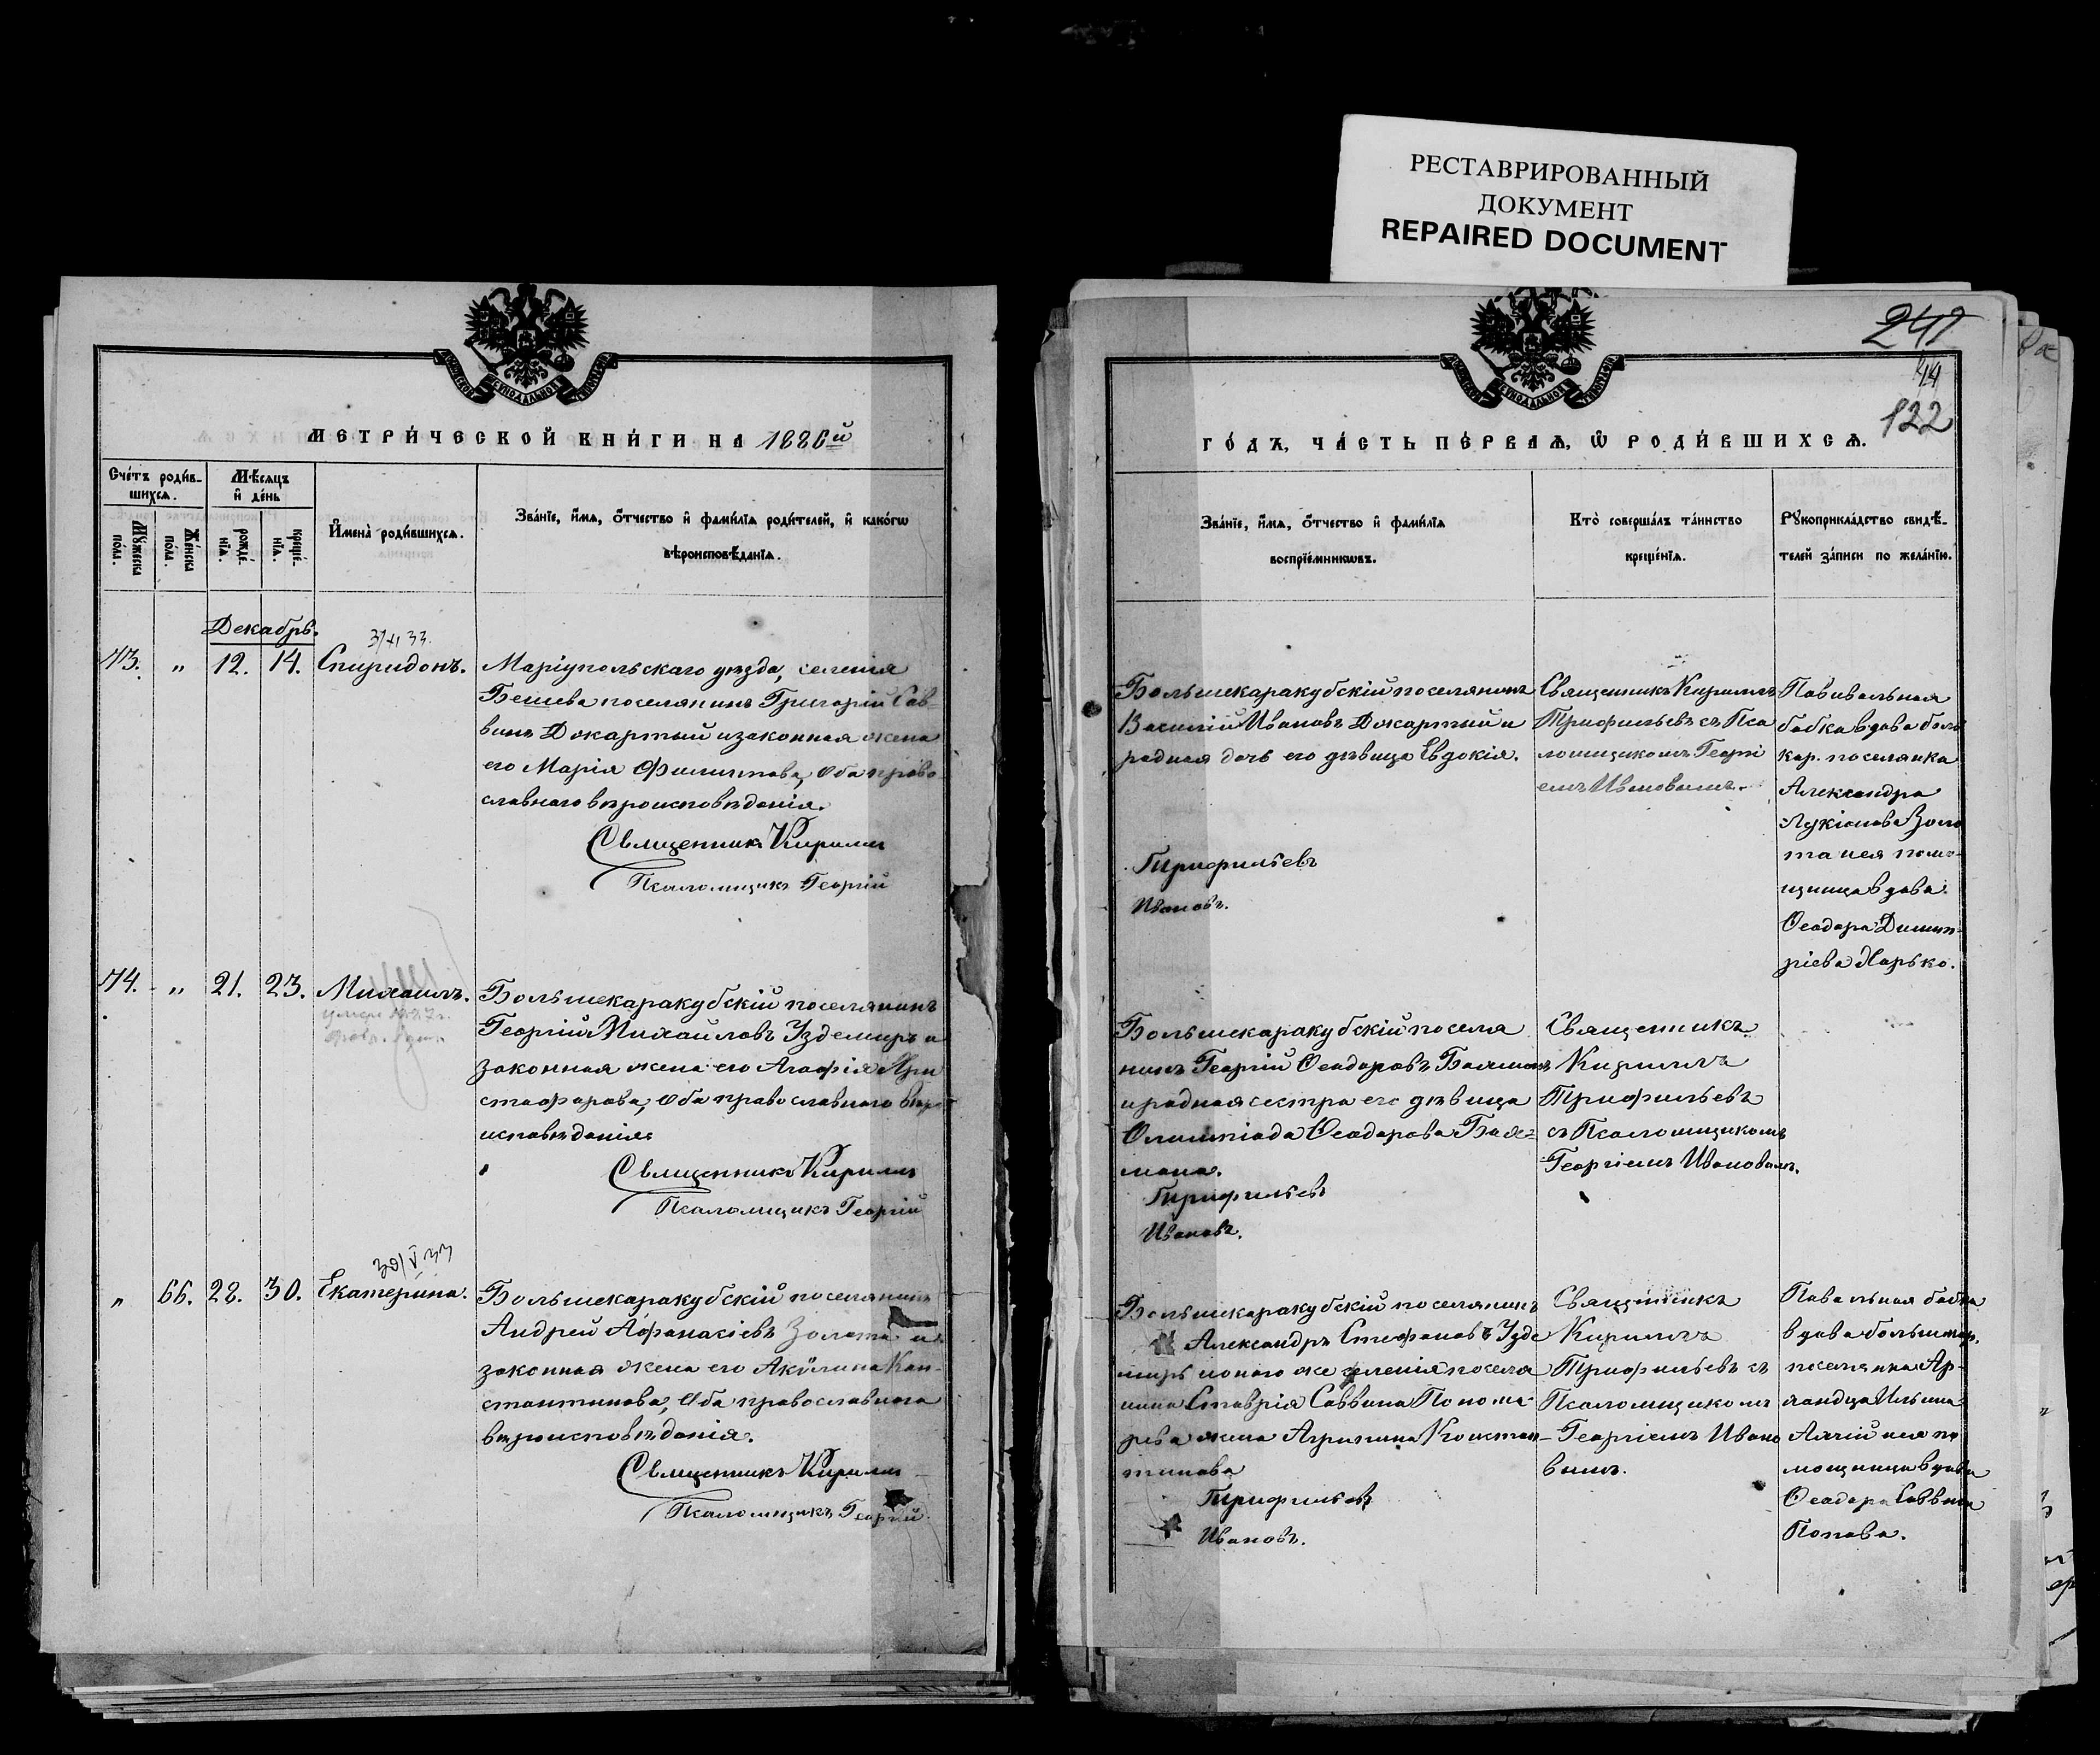 РЕСТАВРИРОВАННЫЙ
ДОКУМЕНТ
REPAIRED DOCUMENT
МЕТРИ́ЧЕСКОЙ КНИ́ГИ НА 1886й
Сче́тъ роди́в-
шихсѧ.
Мѣ́сѧцъ
и҆ де́нь
Мꙋ́жеска
по́ла.
Же́нска
по́ла.
рожде́-
нїѧ.
креще́-
нїѧ.
И҆мена̀ роди́вшихсѧ.
Зва́нїе, и҆́мѧ, ѻ҆́тчество и҆ фами́лїѧ роди́телей, и҆ како́гѡ
вѣроисповѣ́данїѧ.
Декабрь.
3/XI 33.
73. „ 12. 14. Спиридонъ.
Маріупольскаго уѣзда, селенія
Бешева поселянинъ Григорій Сав-
винъ Джартый и законная жена
его Марія Филиппова, оба право-
славнаго вѣроисповѣданія.
Священникъ Кириллъ
Псаломщикъ Георгій
74. „ 21. 23. Михаилъ.
Большекаракубскій поселянинъ
Георгій Михайловъ Уздемиръ и
законная жена его Агафія Хри
стофорова, оба православнаго вѣро
исповѣданія
Священникъ Кириллъ
Псаломщикъ Георгій
30/V 33
„ 66. 28. 30. Екатерина.
Большекаракубскій поселянинъ
Андрей Афанасіевъ Золота и
законная жена его Акулина Кон-
стантинова, оба православнаго
вѣроисповѣданія.
Священникъ Кириллъ
Псаломщикъ Георгій
242
122
ГО́ДЪ, ЧА́СТЬ ПЕ́РВАѦ, Ѡ҆ РОДИ́ВШИХСѦ.
Зва́нїе, и҆́мѧ, ѻ҆́тчество и҆ фами́лїѧ
воспрїе́мникѡвъ.
Кто̀ соверша́лъ та́инство
креще́нїѧ.
Рꙋкоприкла́дство свидѣ́-
телей за́писи по жела́нїю.
Большекаракубскій поселянинъ
Василій Ивановъ Джартый и
родная дочь его дѣвица Евдокія.
Трифильевъ
Ивановъ.
Священникъ Кириллъ
Трифильевъ съ Пса
ломщикомъ Георгі
емъ Ивановымъ.
Повивальная
бабка вдова боль
кар. поселянка
Александра
Лукіанова Золо
та и ея помо-
щница вдова
Ѳеодора Димит-
ріева Харько.
Большекаракубскій поселя
нинъ Георгій Ѳеодоровъ Бояманъ
и родная сестра его дѣвица
Олимпіада Ѳеодорова Боя-
мана.
Трифильевъ
Ивановъ.
Священникъ
Кириллъ
Трифильевъ
съ Псаломщикомъ
Георгіемъ Ивановымъ.
Большекаракубскій поселянинъ
Александръ СтефановъУзде
миръ и того же селенія поселя
нина Ставрія Саввина Понома
рева жена Агрипина Констан-
тинова
Трифильевъ
Ивановъ.
Священникъ
Кириллъ
Трифильевъ съ
Псаломщикомъ
Георгіемъ Ивано
вымъ.
Повальная бабка
вдова большекар.
поселянка
Ильина
и ея по
мощница вдова
Ѳеодора Саввина
Попова.